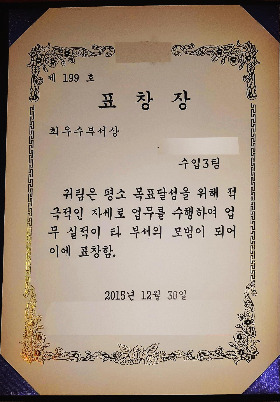 제 199 호
표창장
최우수부서상
수입3팀
귀팀은 평소 목표달성을 위해 적
극적인 자세로 업무를 수행하여 업
무 실적이 타 부서의 모범이 되어
이에 표창함.
2015년 12월 30일